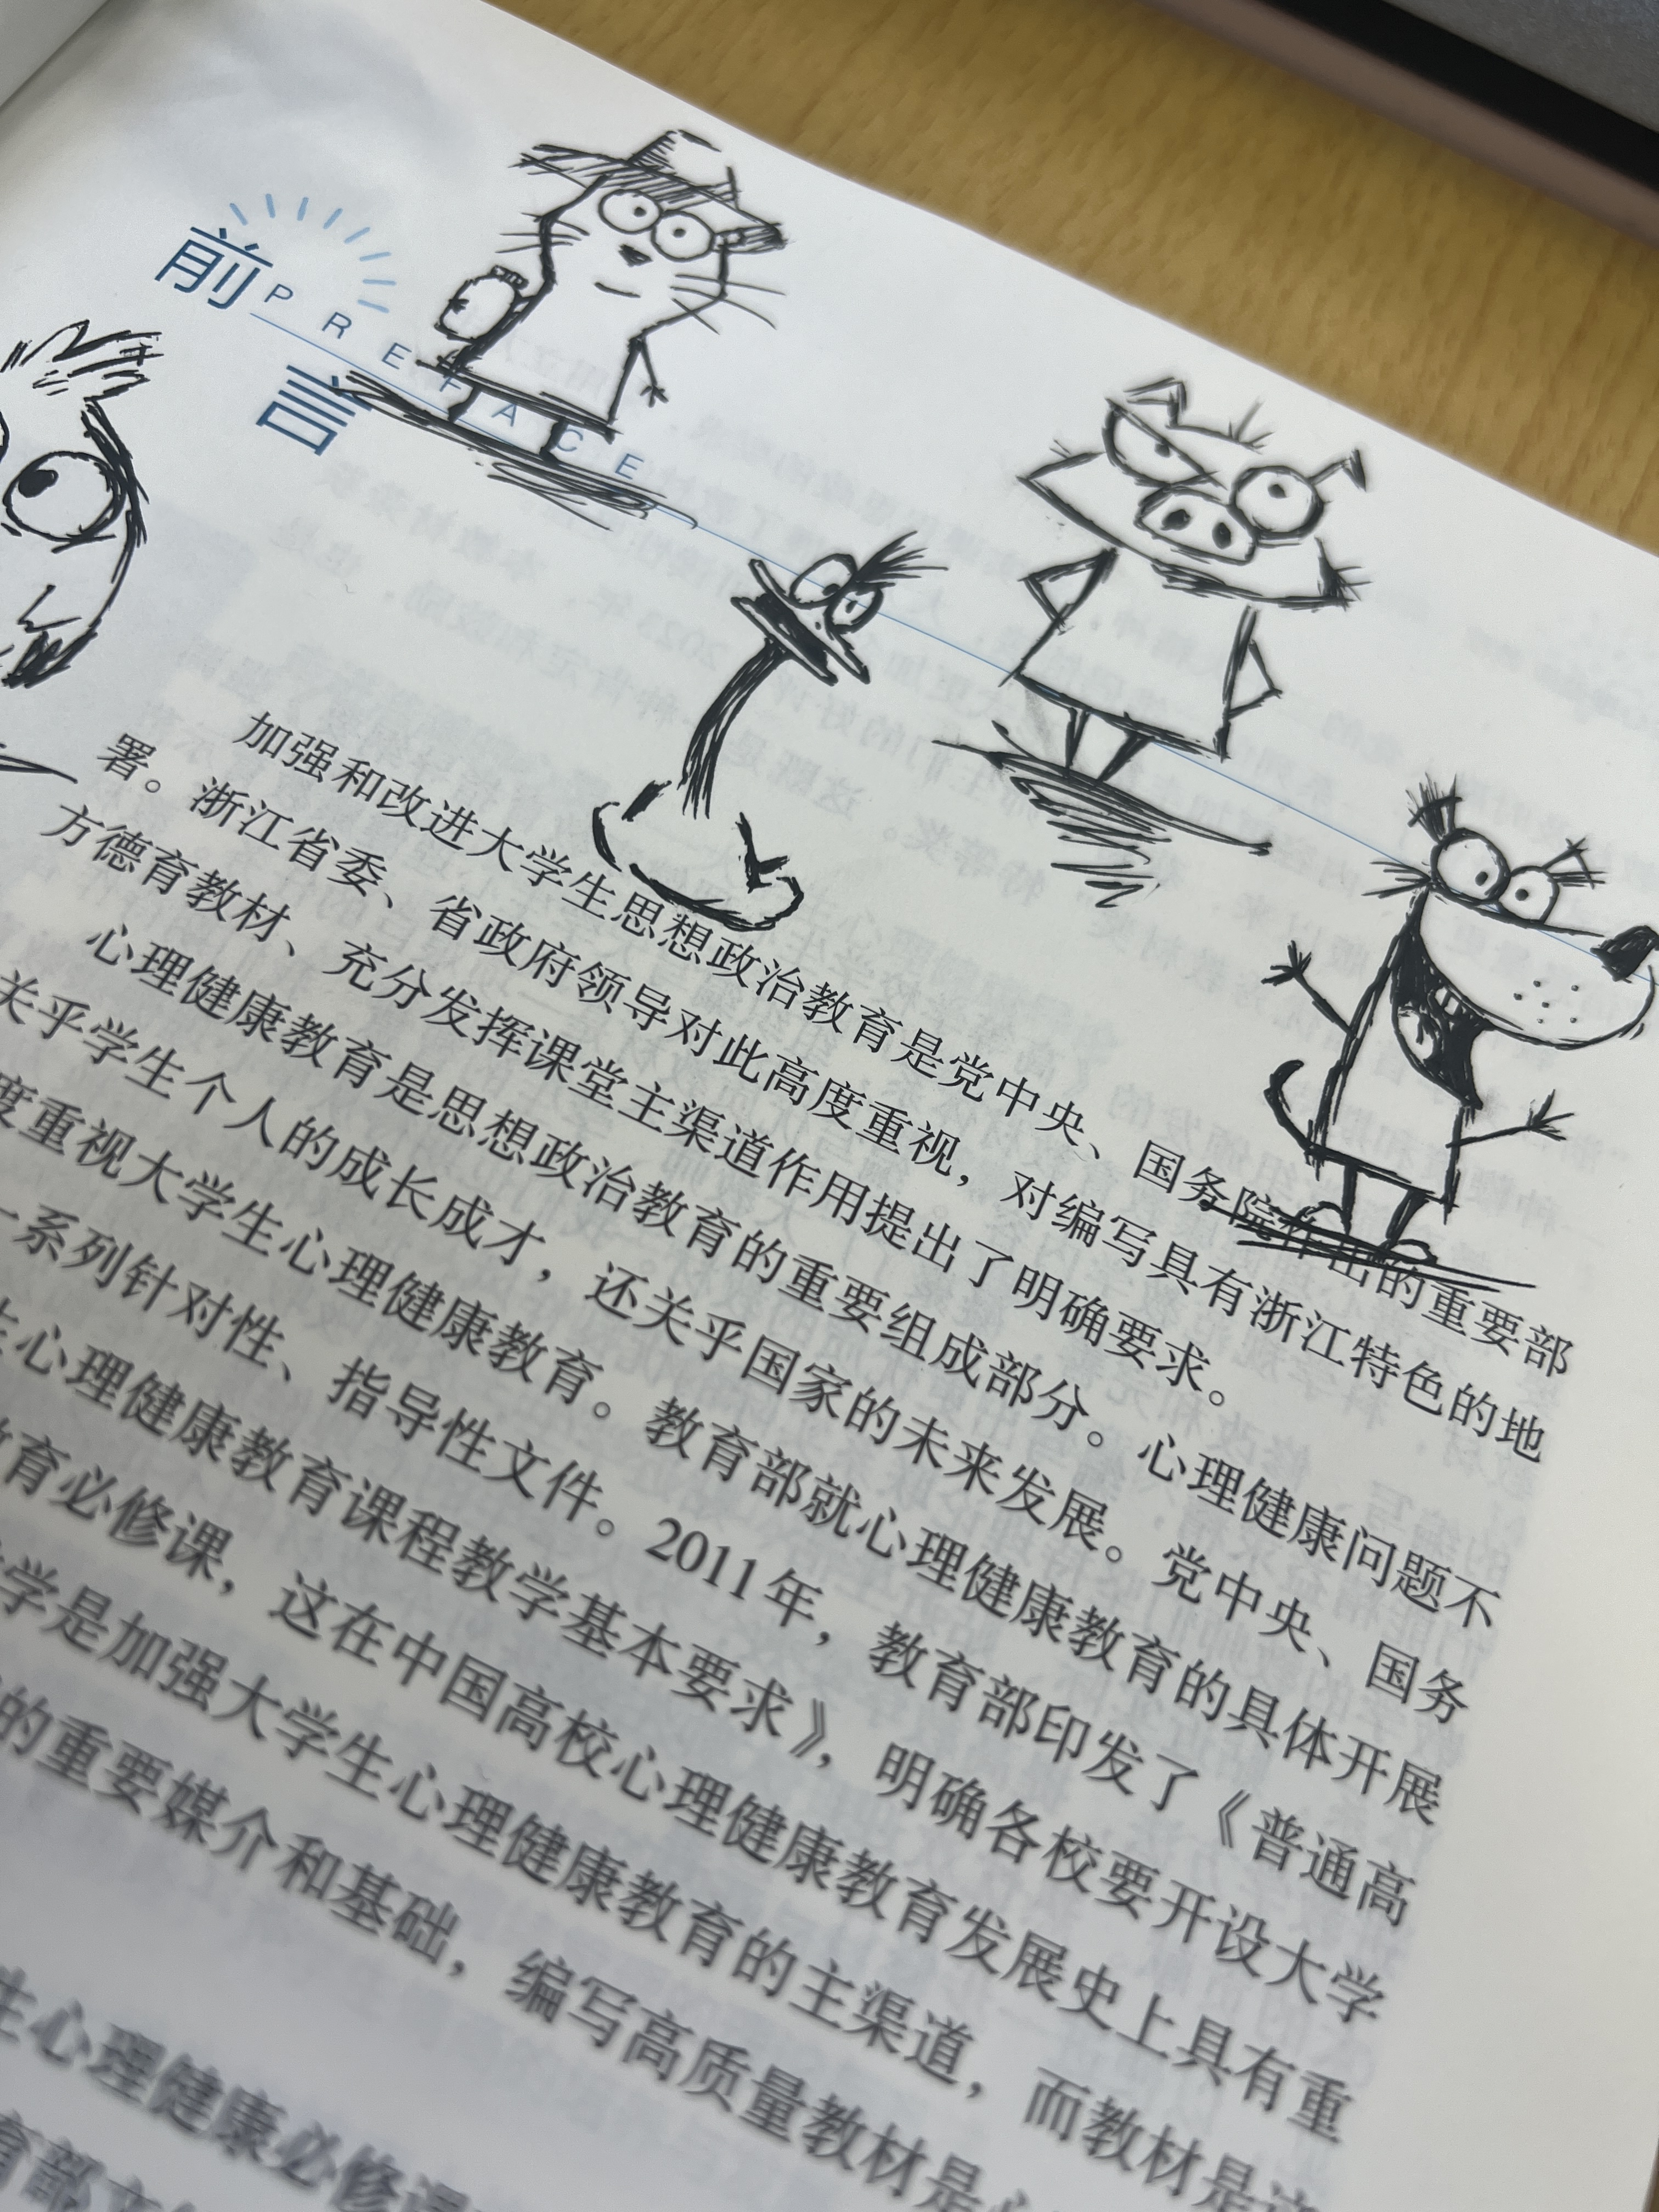 前言
PREFACE
加强和改进大学生思想政治教育是党中央、国务院作出的重要部
署。浙江省委、省政府领导对此高度重视，对编写具有浙江特色的地
方德育教材、充分发挥课堂主渠道作用提出了明确要求。
心理健康教育是思想政治教育的重要组成部分。心理健康问题不
关乎学生个人的成长成才，还关乎国家的未来发展。党中央、国务
度重视大学生心理健康教育。教育部就心理健康教育的具体开展
一系列针对性、指导性文件。2011年，教育部印发了《普通高
生心理健康教育课程教学基本要求》，明确各校要开设大学
教育必修课，这在中国高校心理健康教育发展史上具有重
学是加强大学生心理健康教育的主渠道，而教材是这
的重要媒介和基础，编写高质量教材是心
生心理健康必修课
育部